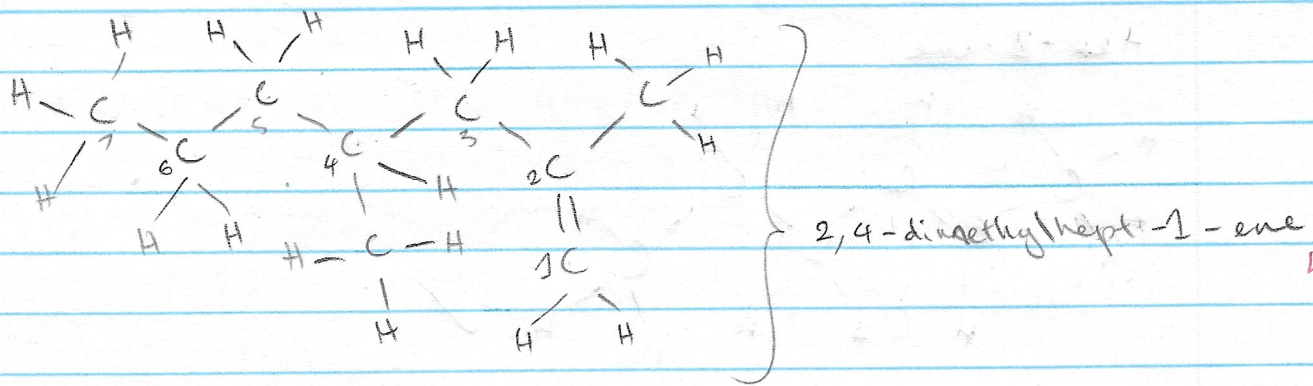 H H H H H H H
H C C C C
7 5 3 H
6 C 4 C 2 C
H H
H H H C H 1 C
H H H
2,4-dimethylhept-1-ene